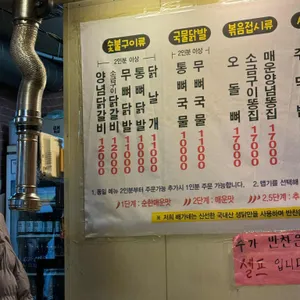 숯불구이류
2인분 이상
양념닭갈비 12000
소금닭갈비 12000
무뼈닭발 11000
통뼈닭발 11000
닭날개 11000
국물닭발
2인분 이상
무뼈국물 11000
통뼈국물 11000
볶음접시류
오돌뼈 17000
소금구이똥집 17000
매운양념똥집 17000
1. 동일 메뉴 2인분부터 주문가능 추가시 1인분 주문 가능합니다.
2. 맵기를 선택해
1단계 : 순한매운맛
2단계 : 매운맛
2.5단계 : 추
※ 저희 쎄가네는 신선한 국내산 생닭만을 사용하여
추가 반찬은
셀프 입니다